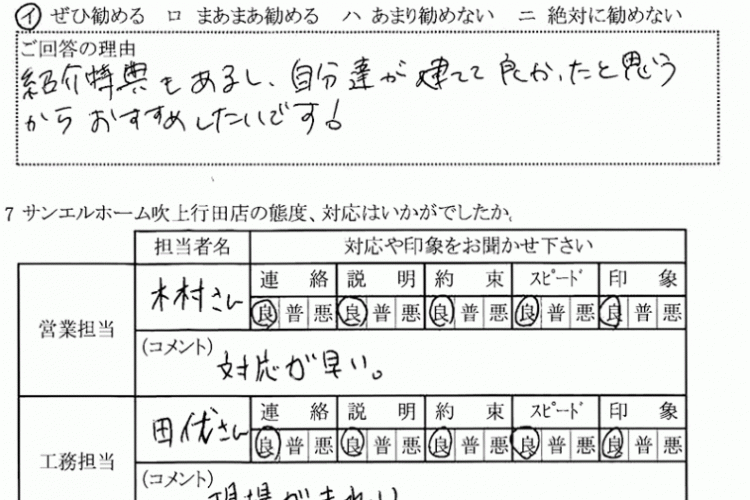 イ ぜひ勧める ロ まあまあ勧める ハ あまり勧めない ニ 絶対に勧めない
ご回答の理由
紹介特典もあるし、自分達が建てて良かったと思う
からおすすめしたいです!
7 サンエルホーム吹上行田店の態度、対応はいかがでしたか。
担当者名 対応や印象をお聞かせ下さい
営業担当 木村さん 連絡 説明 約束 スピード 印象
良 普 悪 良 普 悪 良 普 悪 良 普 悪 良 普 悪
(コメント) 対応が早い。
工務担当 田代さん 連絡 説明 約束 スピード 印象
良 普 悪 良 普 悪 良 普 悪 良 普 悪 良 普 悪
(コメント) 現場がきれい